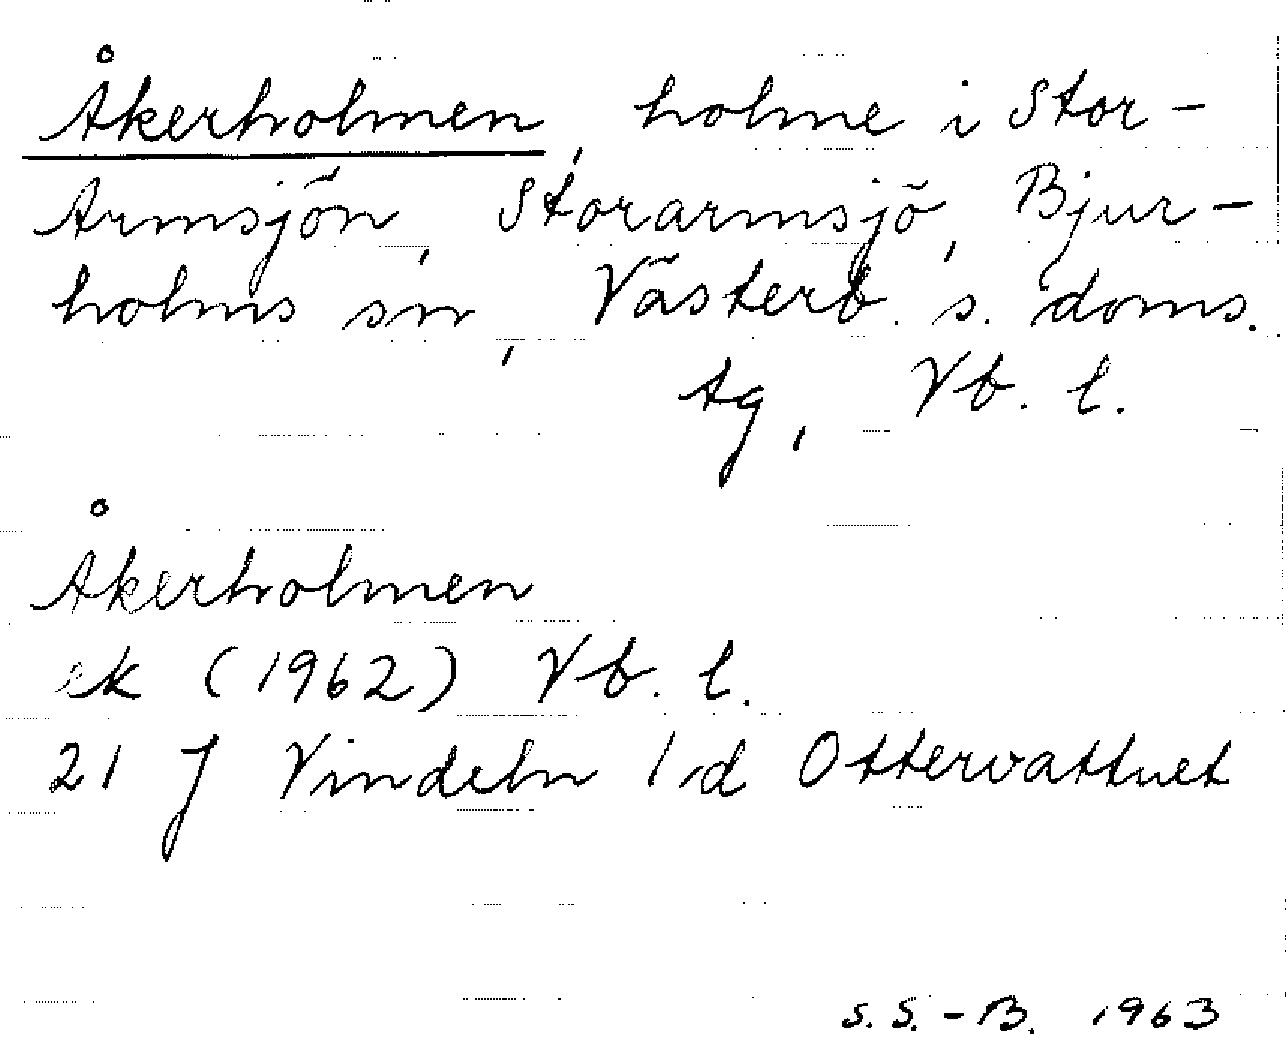 Åkerholmen, holme i Stor-
Armsjön, Storarmsjö, Bjur-
holms sn, Västerb. s. doms.
tg, Vb. l.
Åkerholmen
ek (1962) Vb. l.
21 J Vindeln 1 d Ottervattnet
S. S.-B. 1963